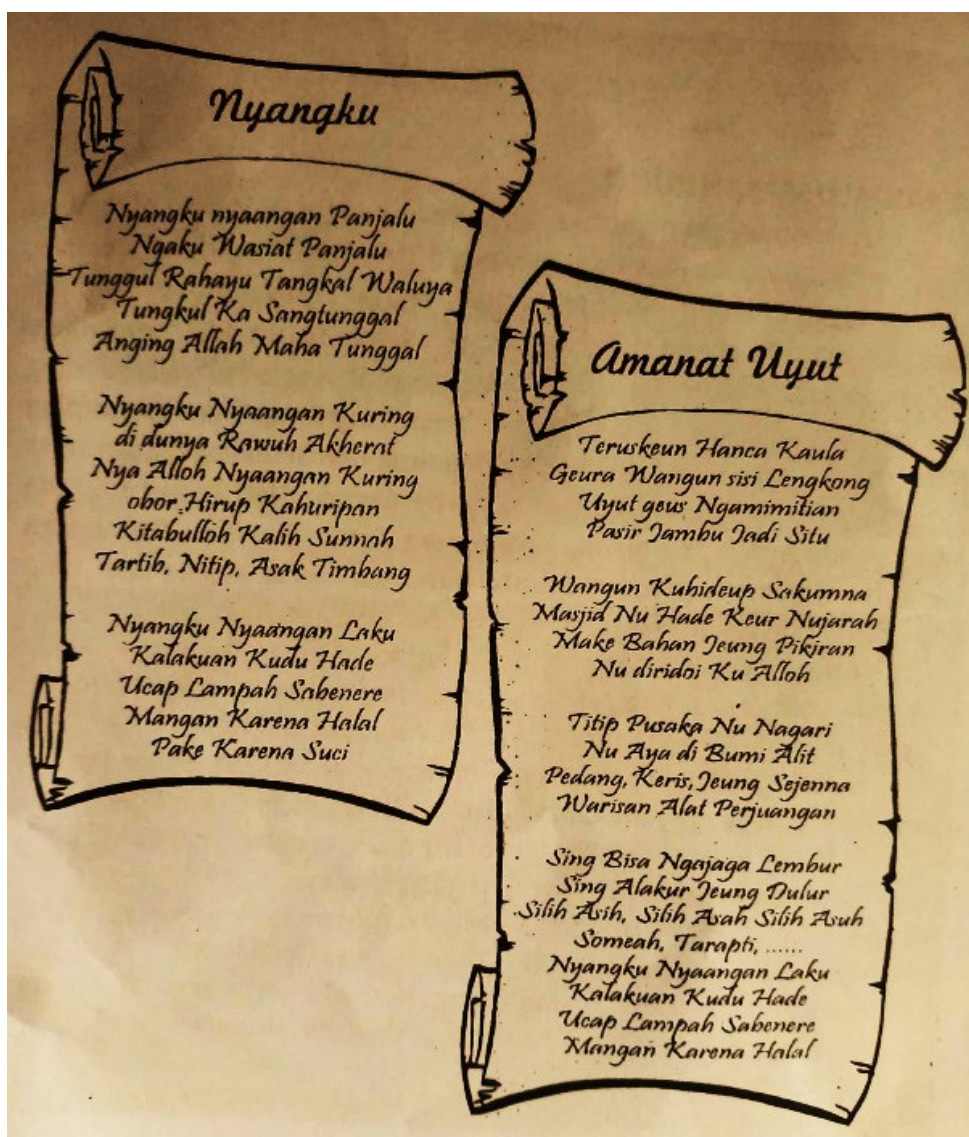 Nyangku
Nyangku nyaangan Panjalu
Ngaku Wasiat Panjalu
Tunggul Rahayu Tangkal Waluya
Tungkul Ka Sangtunggal
Anging Allah Maha Tunggal
Nyangku Nyaangan Kuring
di dunya Rawuh Akherat
Nya Alloh Nyaangan Kuring
obor Hirup Kahuripan
Kitabulloh Kalih Sunnah
Tartib, Nitip, Asak Timbang
Nyangku Nyaangan Laku
Kalakuan Kudu Hade
Ucap Lampah Sabenere
Mangan Karena Halal
Pake Karena Suci
Amanat Uyut
Teruskeun Hanca Kaula
Geura Wangun sisi Lengkong
Uyut geus Ngamimitian
Pasir Jambu Jadi Situ
Wangun Kuhideup Sakumna
Masjid Nu Hade Keur Nujarah
Make Bahan Jeung Pikiran
Nu diridoi Ku Alloh
Titip Pusaka Nu Nagari
Nu Aya di Bumi Alit
Pedang, Keris, Jeung Sejenna
Warisan Alat Perjuangan
Sing Bisa Ngajaga Lembur
Sing Alakur Jeung Dulur
Silih Asih, Silih Asah Silih Asuh
Someah, Tarapti, ......
Nyangku Nyaangan Laku
Kalakuan Kudu Hade
Ucap Lampah Sabenere
Mangan Karena Halal